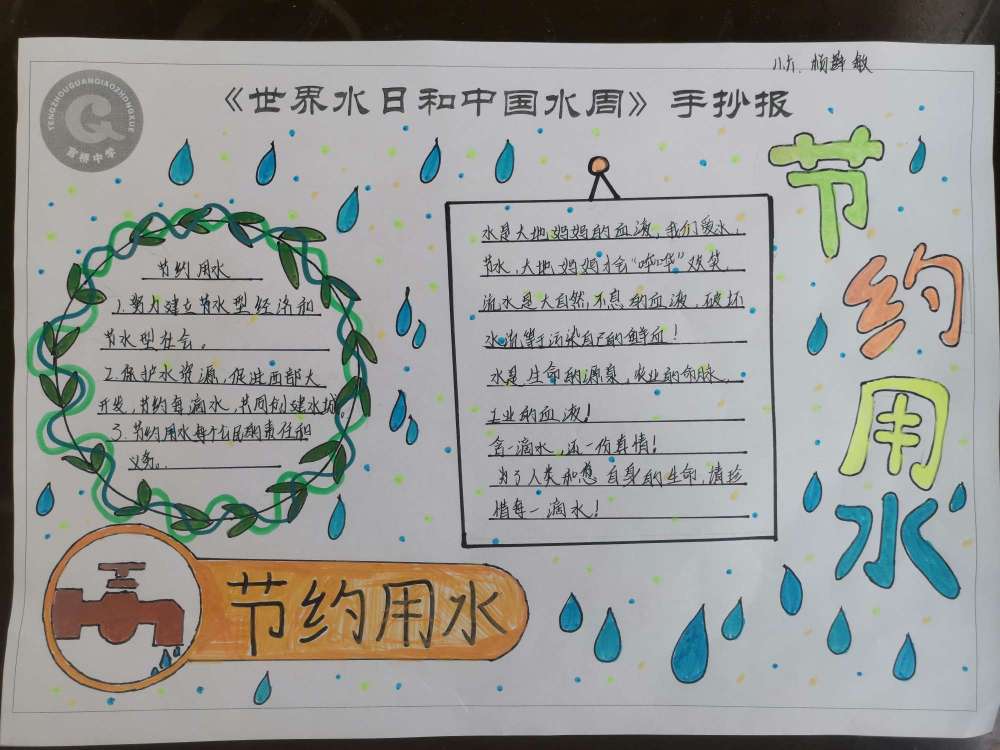 八六、杨
《世界水日和中国水周》手抄报
TENGZHOUGUANQIAOZHONGXUE
官桥中学
节约用水
1.努力建立节水型经济和
节水型社会。
2.保护水资源,促进西部大
开发,节约每滴水,共同创建水城。
3.节约用水每个公民的责任和
义务。
水是大地妈妈的血液,我们爱水,
节水,大地妈妈才会“哗哗”欢笑.
流水是大自然不息的血液,破坏
水流等于污染自己的鲜血!
水是生命的源泉,农业的命脉,
工业的血液!
舍一滴水,还一份真情!
为了人类和您自身的生命,请珍
惜每一滴水!
节约用水
节约用水